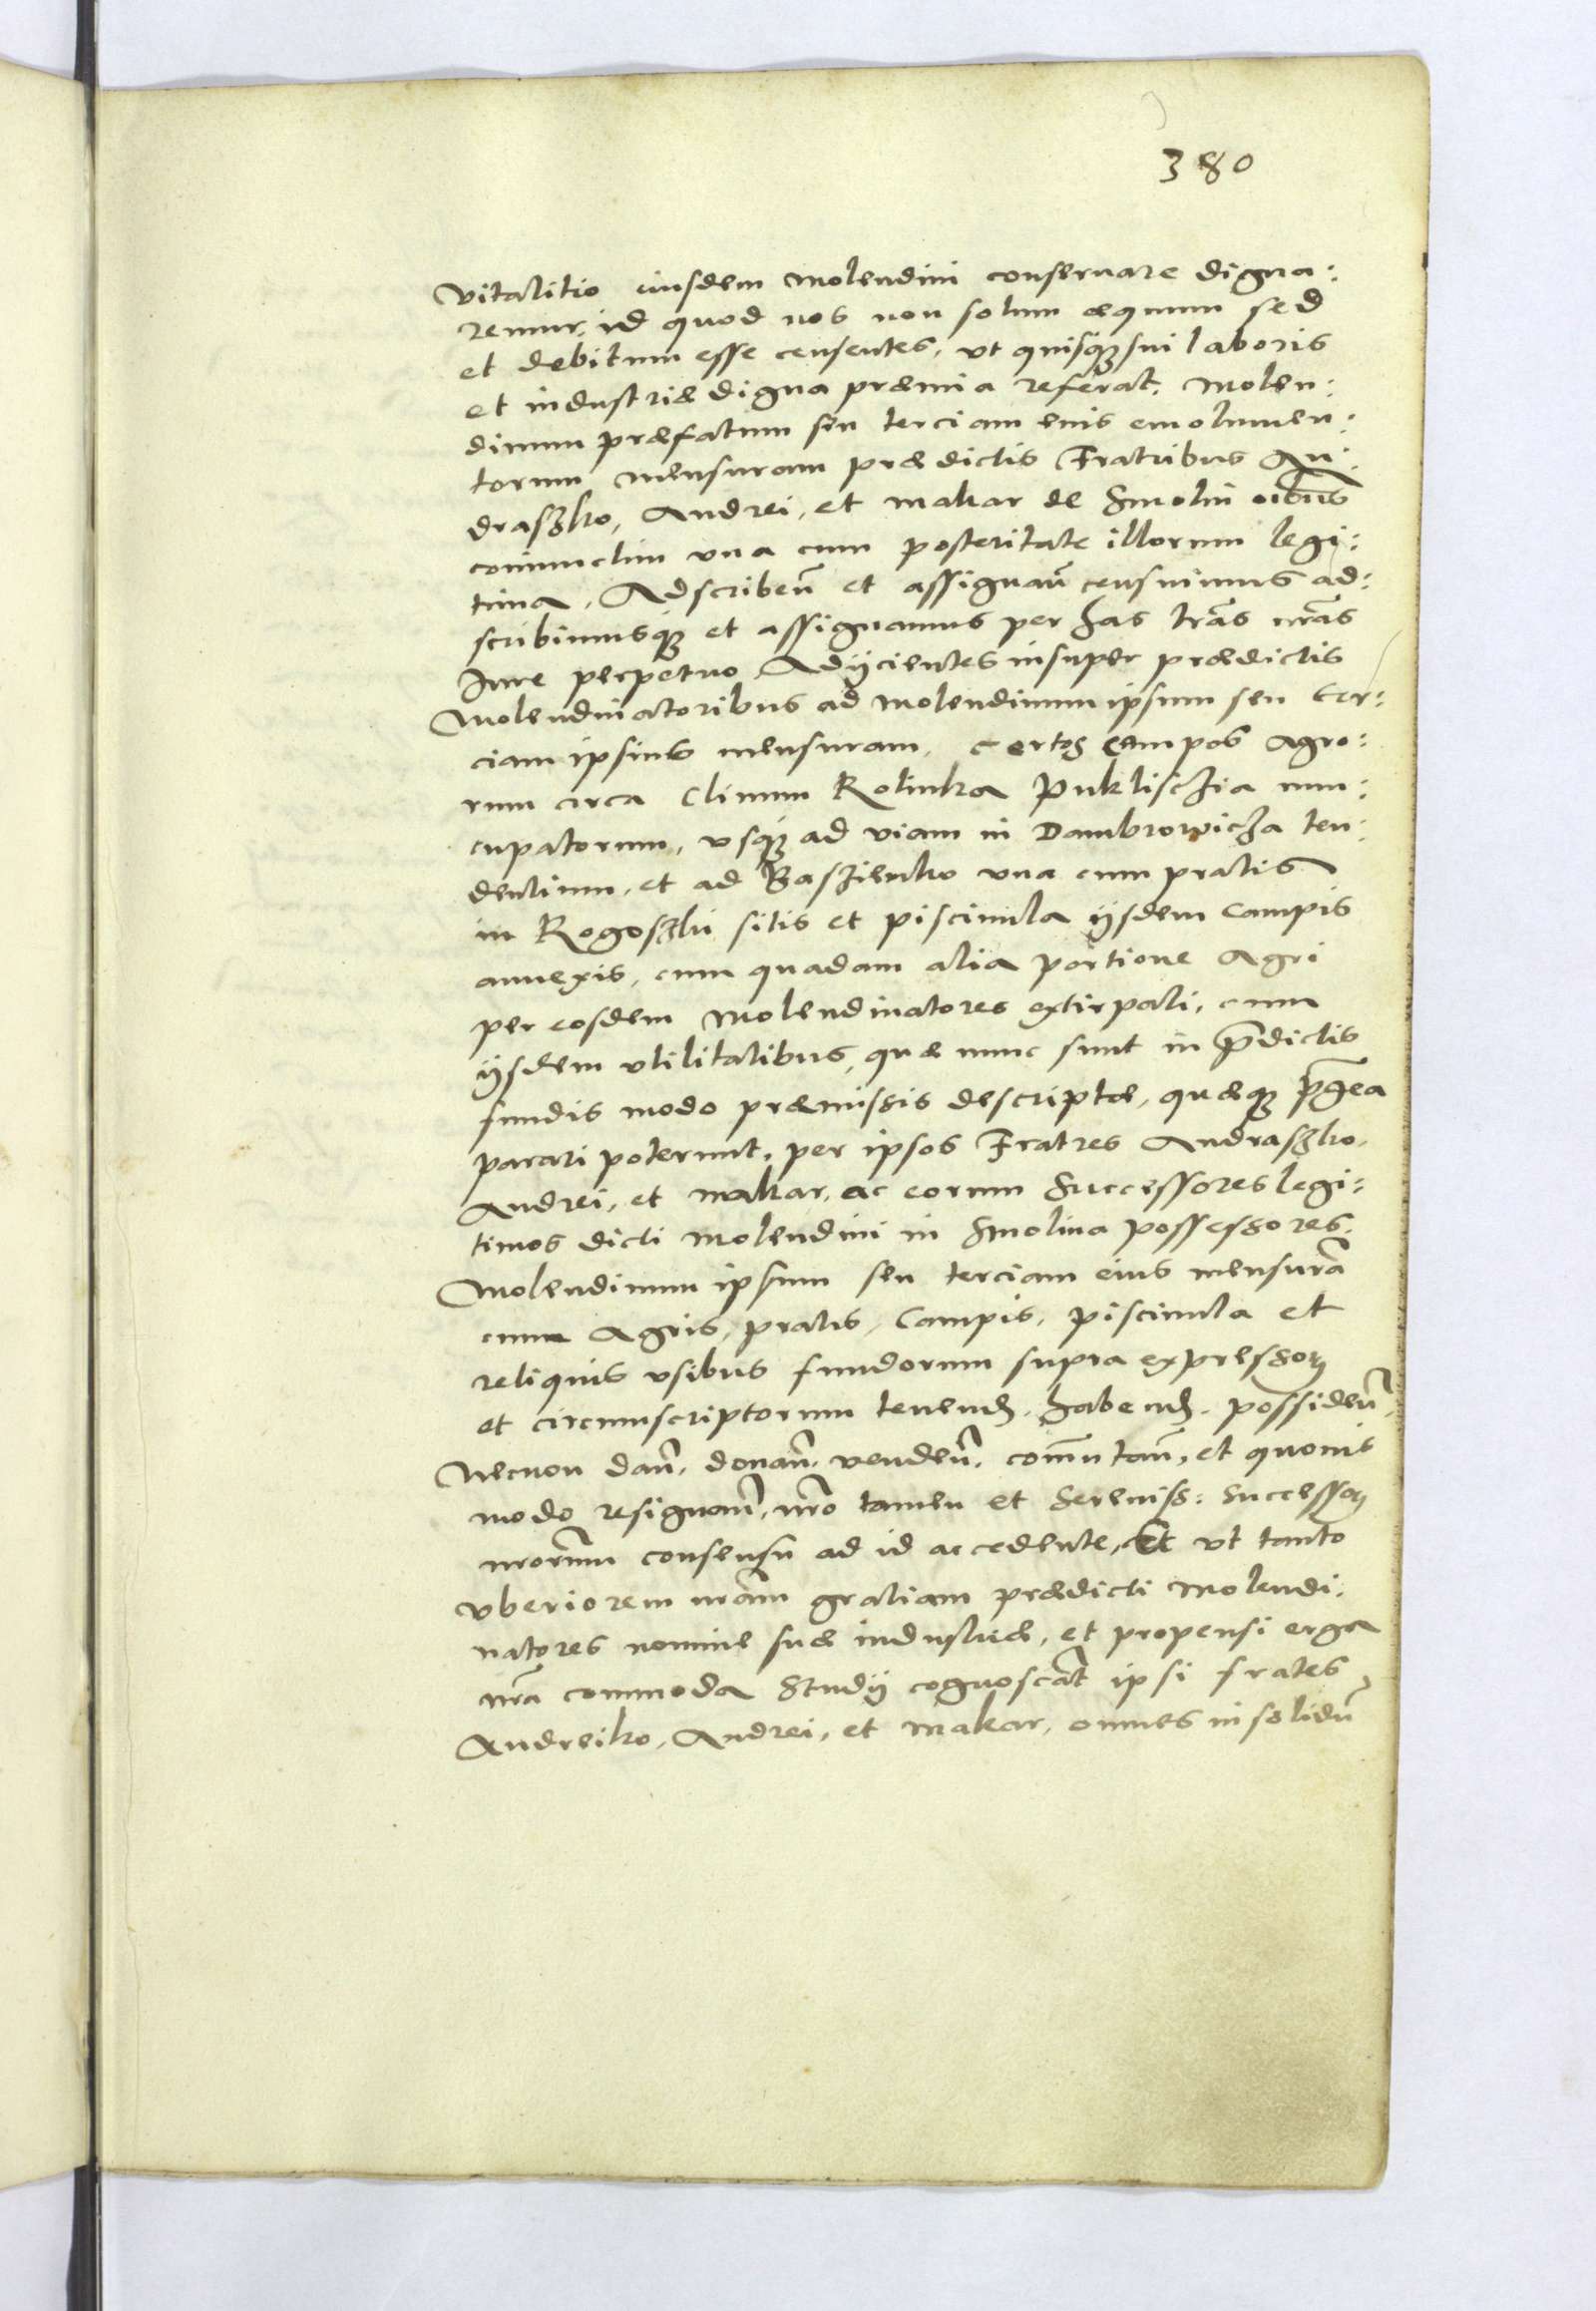 380
Vitalitio eiusdem Molendini conseruare digna:
remur, id quod nos non solum æquum sed
et debitum esse censentes, vt quisq3 sui laboris
et industriæ digna præmia referat, Molen:
dinum præfatum seu terciam euis emolumen:
torum mensuram prædictis Fratribus An:
draszko, Andrei, et makar de Smolin oibus
coniunctim vna cum posteritate illorum legi:
tima, Adscribeñ et assignañ censuimus ad:
scribimusq3 et assignamus per has lras nras
Jure perpetuo Adijcientes insuper prædictis
Molendinatoribus ad Molendinum ipsum seu ter:
ciam ipsius mensuram, certos campos Agro:
rum circa Cliuum Rolinka Puklisczia nun:
cupatorum, vsq3 ad viam in Dambrowicza ten:
dentium, et ad Baszienko vna cum pratis
in Rogoszki sitis et piscinula ijsdem Campis
annexis, cum quadam alia portione Agri
per eosdem Molendinatores extirpati, cum
ijsdem vtilitatibus, quæ nunc sunt in prædictis
fundis modo præmissis descriptæ, quæq3
parari poterunt, per ipsos Fratres Andraszko,
Andrei, et makar, ac eorum Successores legi:
timos dicti Molendini in Smolina possessores.
Molendinum ipsum seu terciam eius mensurã
cum Agris, pratis, Campis, piscinula et
reliquis vsibus fundorum supra expressoꝝ
et circumscriptorum tenend, habend, possideñ,
Necnon dañ, donañ, vendeñ, comutañ, et quouis
modo resignañ, nro tamen et Sereniss: Successoꝝ
nrorum consensu ad id accedente, Et vt tanto
vberiorem nram gratiam prædicti Molendi:
natores nomine suæ industriæ, et propensi erga
nra commoda Studij cognoscãt ipsi frates
Andreiko, Andrei, et Makar, omnes in solidũ